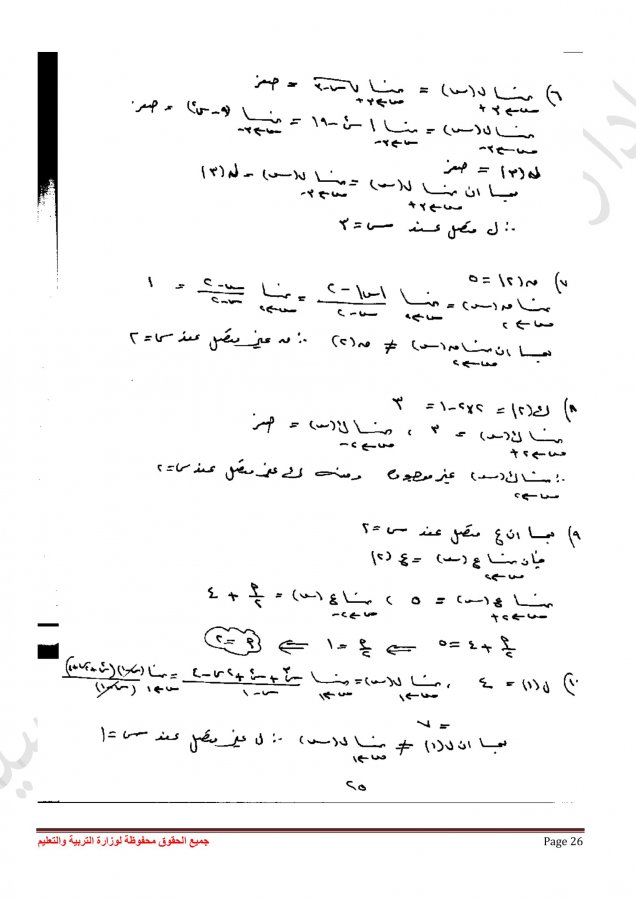 ٦) نهــا ل(س) = نهــا √س-٣ = صفر
س←٣+ س←٣+
نهــا ل(س) = نهــا |س²-٩| = نهــا (٩-س²) = صفر
س←٣- س←٣- س←٣-
ل(٣) = صفر
بما ان نهــا ل(س) = نهــا ل(س) = ل(٣)
س←٣+ س←٣-
∴ ل متصل عند س=٣
٧) هـ(٢) = ٥
نهــا هـ(س) = نهــا |س|-٢ / س-٢ = نهــا س-٢ / س-٢ = ١
س←٢ س←٢ س←٢
بما ان نهــا هـ(س) ≠ هـ(٢) ∴ هـ غير متصل عند س=٢
س←٢
٨) ك(٢) = ٢×٢-١ = ٣
نهــا ك(س) = ٣ ، نهــا ك(س) = صفر
س←٢+ س←٢-
∴ نهــا ك(س) غير موجودة ومنه ك غير متصل عند س=٢
س←٢
٩) بما ان ع متصل عند س=٢
فإن نهــا ع(س) = ع(٢)
س←٢
نهــا ع(س) = ٥ ، نهــا ع(س) = م/٢ + ٤
س←٢+ س←٢-
م/٢ + ٤ = ٥ ⇐ م/٢ = ١ ⇐ م=٢
١٠) ل(١) = ٤ ، نهــا ل(س) = نهــا س³+س²+٢س-٤ / س-١ = نهــا (س-١)(س²+٢س+٤) / (س-١)
س←١ س←١ س←١
= ٧
بما ان ل(١) ≠ نهــا ل(س) ∴ ل غير متصل عند س=١
س←١
٢٥
جميع الحقوق محفوظة لوزارة التربية والتعليم
Page 26